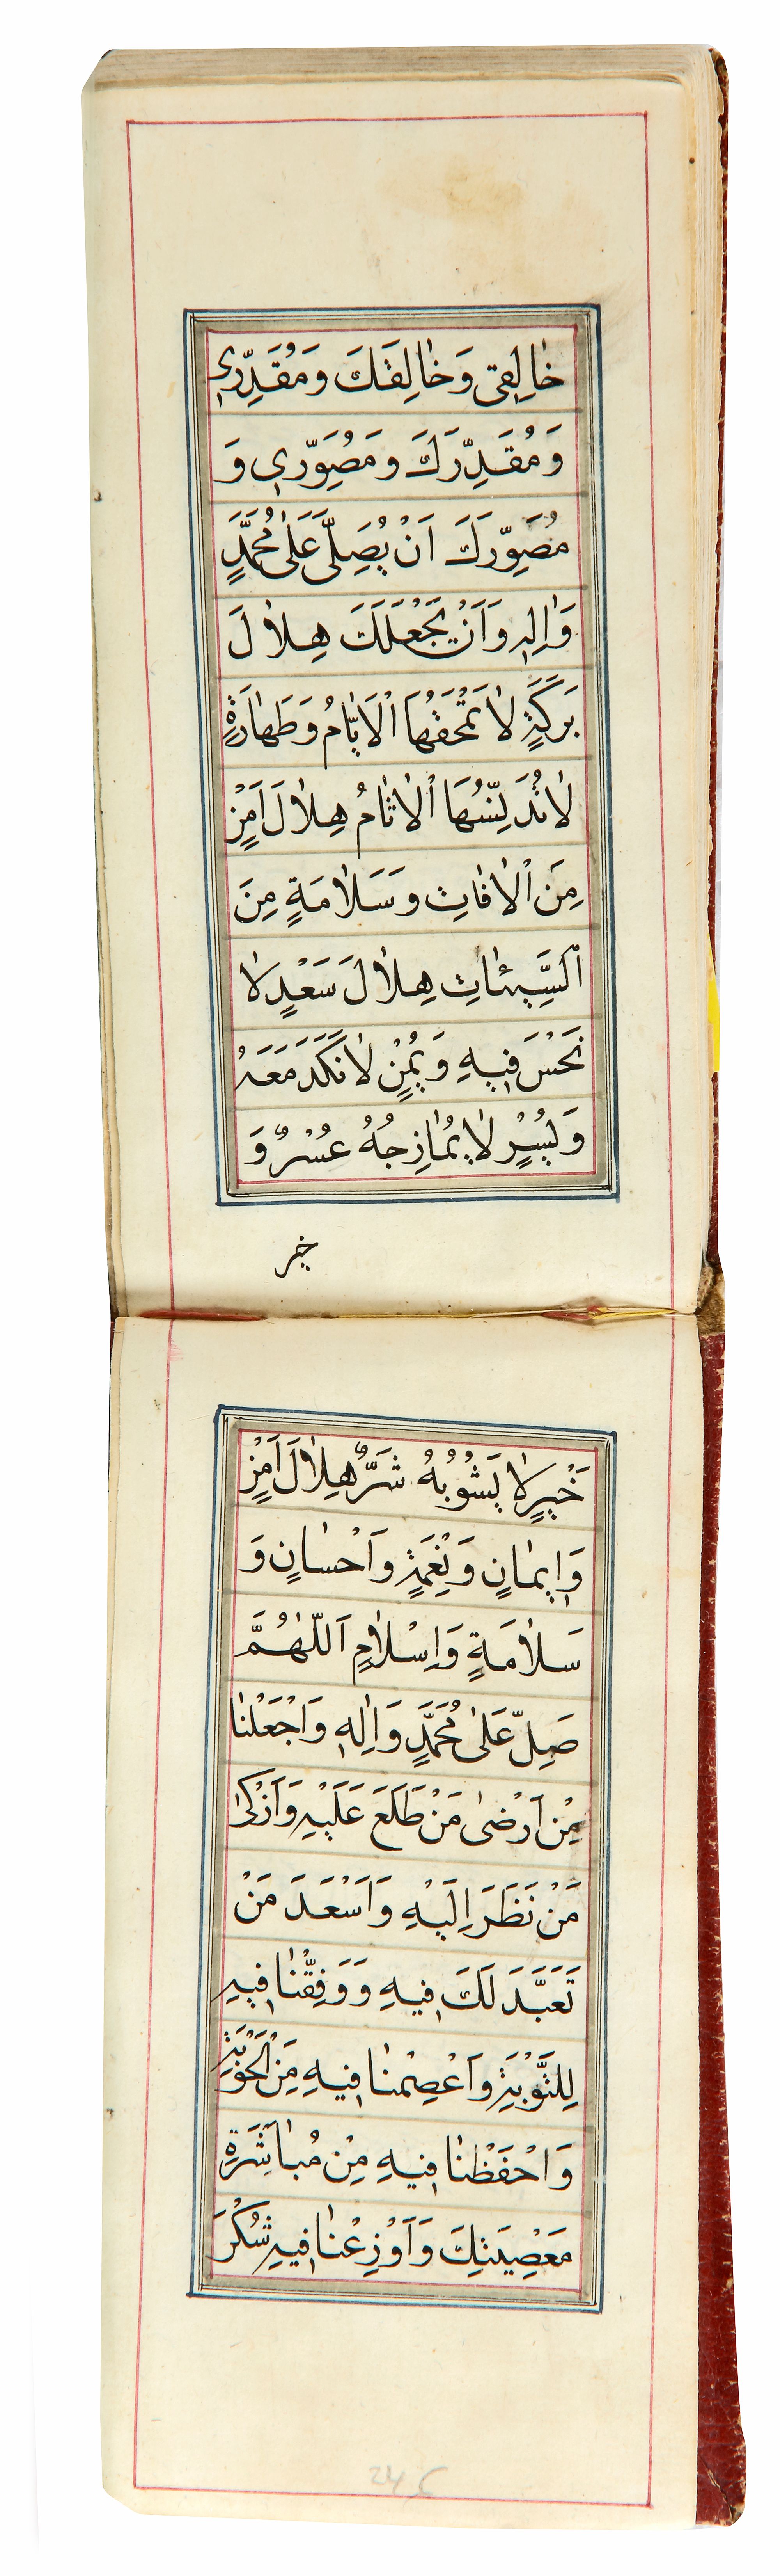 خٰالِقِی وَخٰالِقَكَ وَمُقَدِّرِی
وَمُقَدِّرَكَ وَمُصَوِّرِی وَ
مُصَوِّرَكَ اَنْ یُصَلِّیَ عَلٰی مُحَمَّدٍ
وَاٰلِهِ وَاَنْ یَجْعَلَكَ هِلٰالَ
بَرَكَةٍ لٰا تَمْحَقُهَا الْاَیّٰامُ وَطَهٰارَةٍ
لٰا تُدَنِّسُهَا الْاٰثٰامُ هِلٰالَ اَمْنٍ
مِنَ الْاٰفٰاتِ وَسَلٰامَةٍ مِنَ
السَّیِّئٰاتِ هِلٰالَ سَعْدٍ لٰا
نَحْسَ فِیهِ وَیُمْنٍ لٰا نَكَدَ مَعَهُ
وَیُسْرٍ لٰا یُمٰازِجُهُ عُسْرٌ وَ
خیر
خَیْرٍ لٰا یَشُوبُهُ شَرٌّ هِلٰالَ اَمْنٍ
وَاِیمٰانٍ وَنِعْمَةٍ وَاِحْسٰانٍ وَ
سَلٰامَةٍ وَاِسْلٰامٍ اَللّٰهُمَّ
صَلِّ عَلٰی مُحَمَّدٍ وَاٰلِهِ وَاجْعَلْنٰا
مِنْ اَرْضٰی مَنْ طَلَعَ عَلَیْهِ وَاَزْكٰی
مَنْ نَظَرَ اِلَیْهِ وَاَسْعَدَ مَنْ
تَعَبَّدَ لَكَ فِیهِ وَوَفِّقْنٰا فِیهِ
لِلتَّوْبَةِ وَاعْصِمْنٰا فِیهِ مِنَ الْحَوْبَةِ
وَاحْفَظْنٰا فِیهِ مِنْ مُبٰاشَرَةِ
مَعْصِیَتِكَ وَاَوْزِعْنٰا فِیهِ شُكْرَ